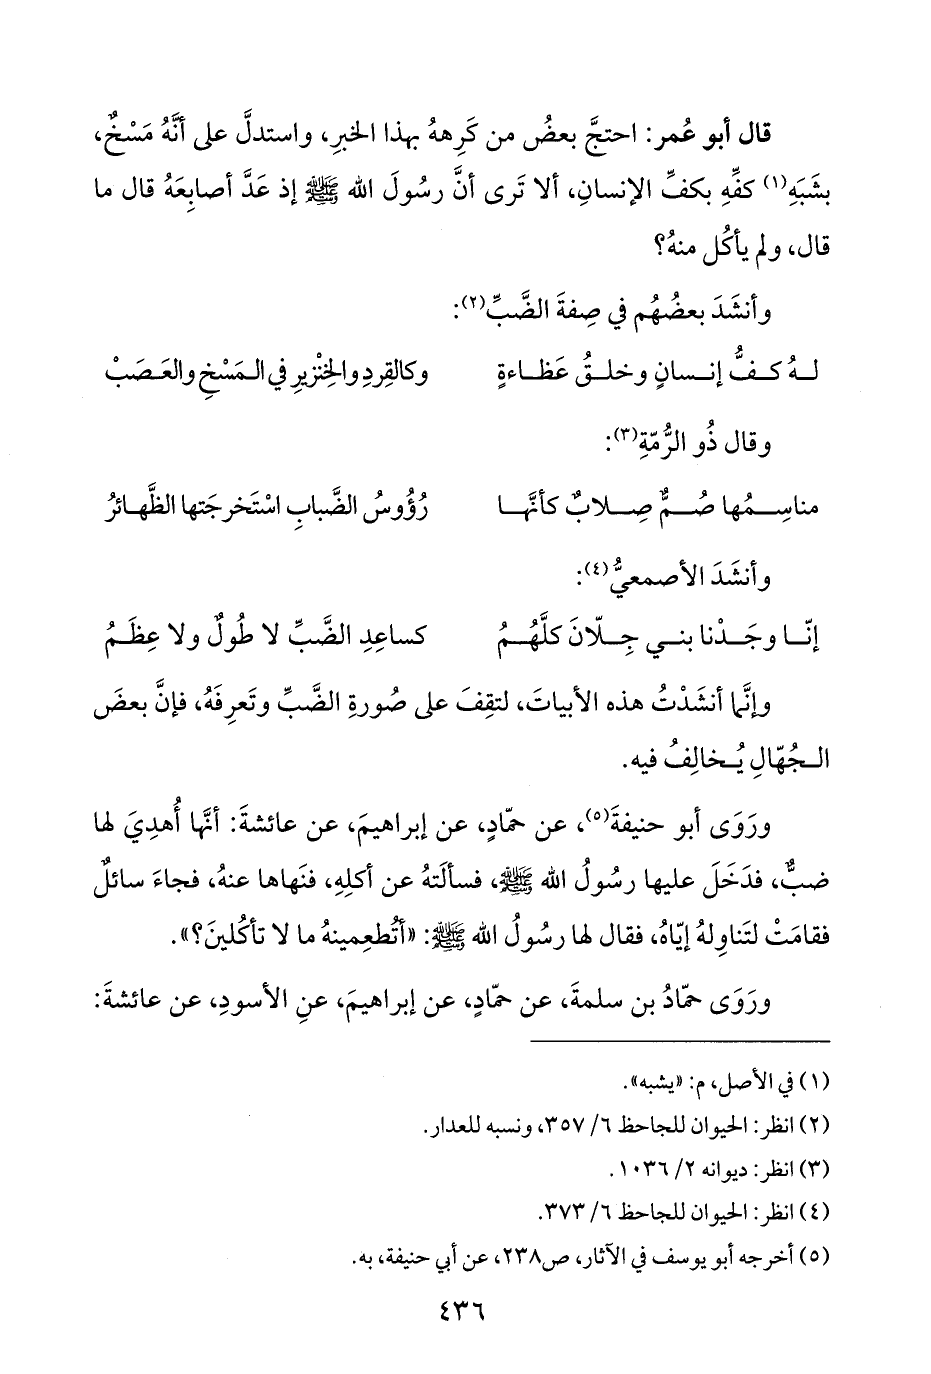 قال أبو عُمر: احتجَّ بعضُ من كَرِههُ بهذا الخبرِ، واستدلَّ على أنَّهُ مَسْخٌ،
بشَبَهِ(١) كفِّهِ بكفِّ الإنسانِ، ألا تَرى أنَّ رسُولَ الله ﷺ إذ عَدَّ أصابِعَهُ قال ما
قال، ولم يأكُل منهُ؟
وأنشَدَ بعضُهُم في صِفةَ الضَّبِّ(٢):
لـهُ كـفُّ إنـسانٍ وخلـقُ عَظـاءةٍ وكالقِردِ والخِنْزيرِ في الـمَسْخِ والعَـصَبْ
وقال ذُو الرُّمّةِ(٣):
مناسِـمُها صُـمٌّ صِـلابٌ كأنَّهـا رُؤُوسُ الضَّبابِ اسْتَخرجَتها الظَّهائرُ
وأنشَدَ الأصمعيُّ(٤):
إنّـا وجَـدْنا بنـي جِـلّانَ كلَّهُـمُ كساعِدِ الضَّبِّ لا طُولٌ ولا عِظَـمُ
وإنَّما أنشَدْتُ هذه الأبياتَ، لتقِفَ على صُورةِ الضَّبِّ وتَعرِفَهُ، فإنَّ بعضَ
الـجُهّالِ يُـخالِفُ فيه.
ورَوَى أبو حنيفةَ(٥)، عن حمّادٍ، عن إبراهيمَ، عن عائشةَ: أنَّها أُهدِيَ لها
ضبٌّ، فدَخَلَ عليها رسُولُ الله ﷺ، فسألَتهُ عن أكلِهِ، فنَهاها عنهُ، فجاءَ سائلٌ
فقامَتْ لتَناوِلهُ إيّاهُ، فقال لها رسُولُ الله ﷺ: «أتُطعِمينهُ ما لا تأكُلينَ؟».
ورَوَى حمّادُ بن سلمةَ، عن حمّادٍ، عن إبراهيمَ، عنِ الأسودِ، عن عائشةَ:
(١) في الأصل، م: «يشبه».
(٢) انظر: الحيوان للجاحظ ٦/ ٣٥٧، ونسبه للعدار.
(٣) انظر: ديوانه ٢/ ١٠٣٦.
(٤) انظر: الحيوان للجاحظ ٦/ ٣٧٣.
(٥) أخرجه أبو يوسف في الآثار، ص٢٣٨، عن أبي حنيفة، به.
٤٣٦